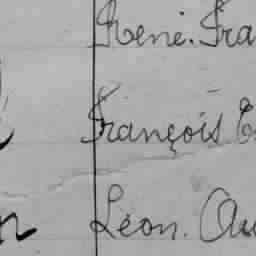 René. Fra
François E
n Léon. Au